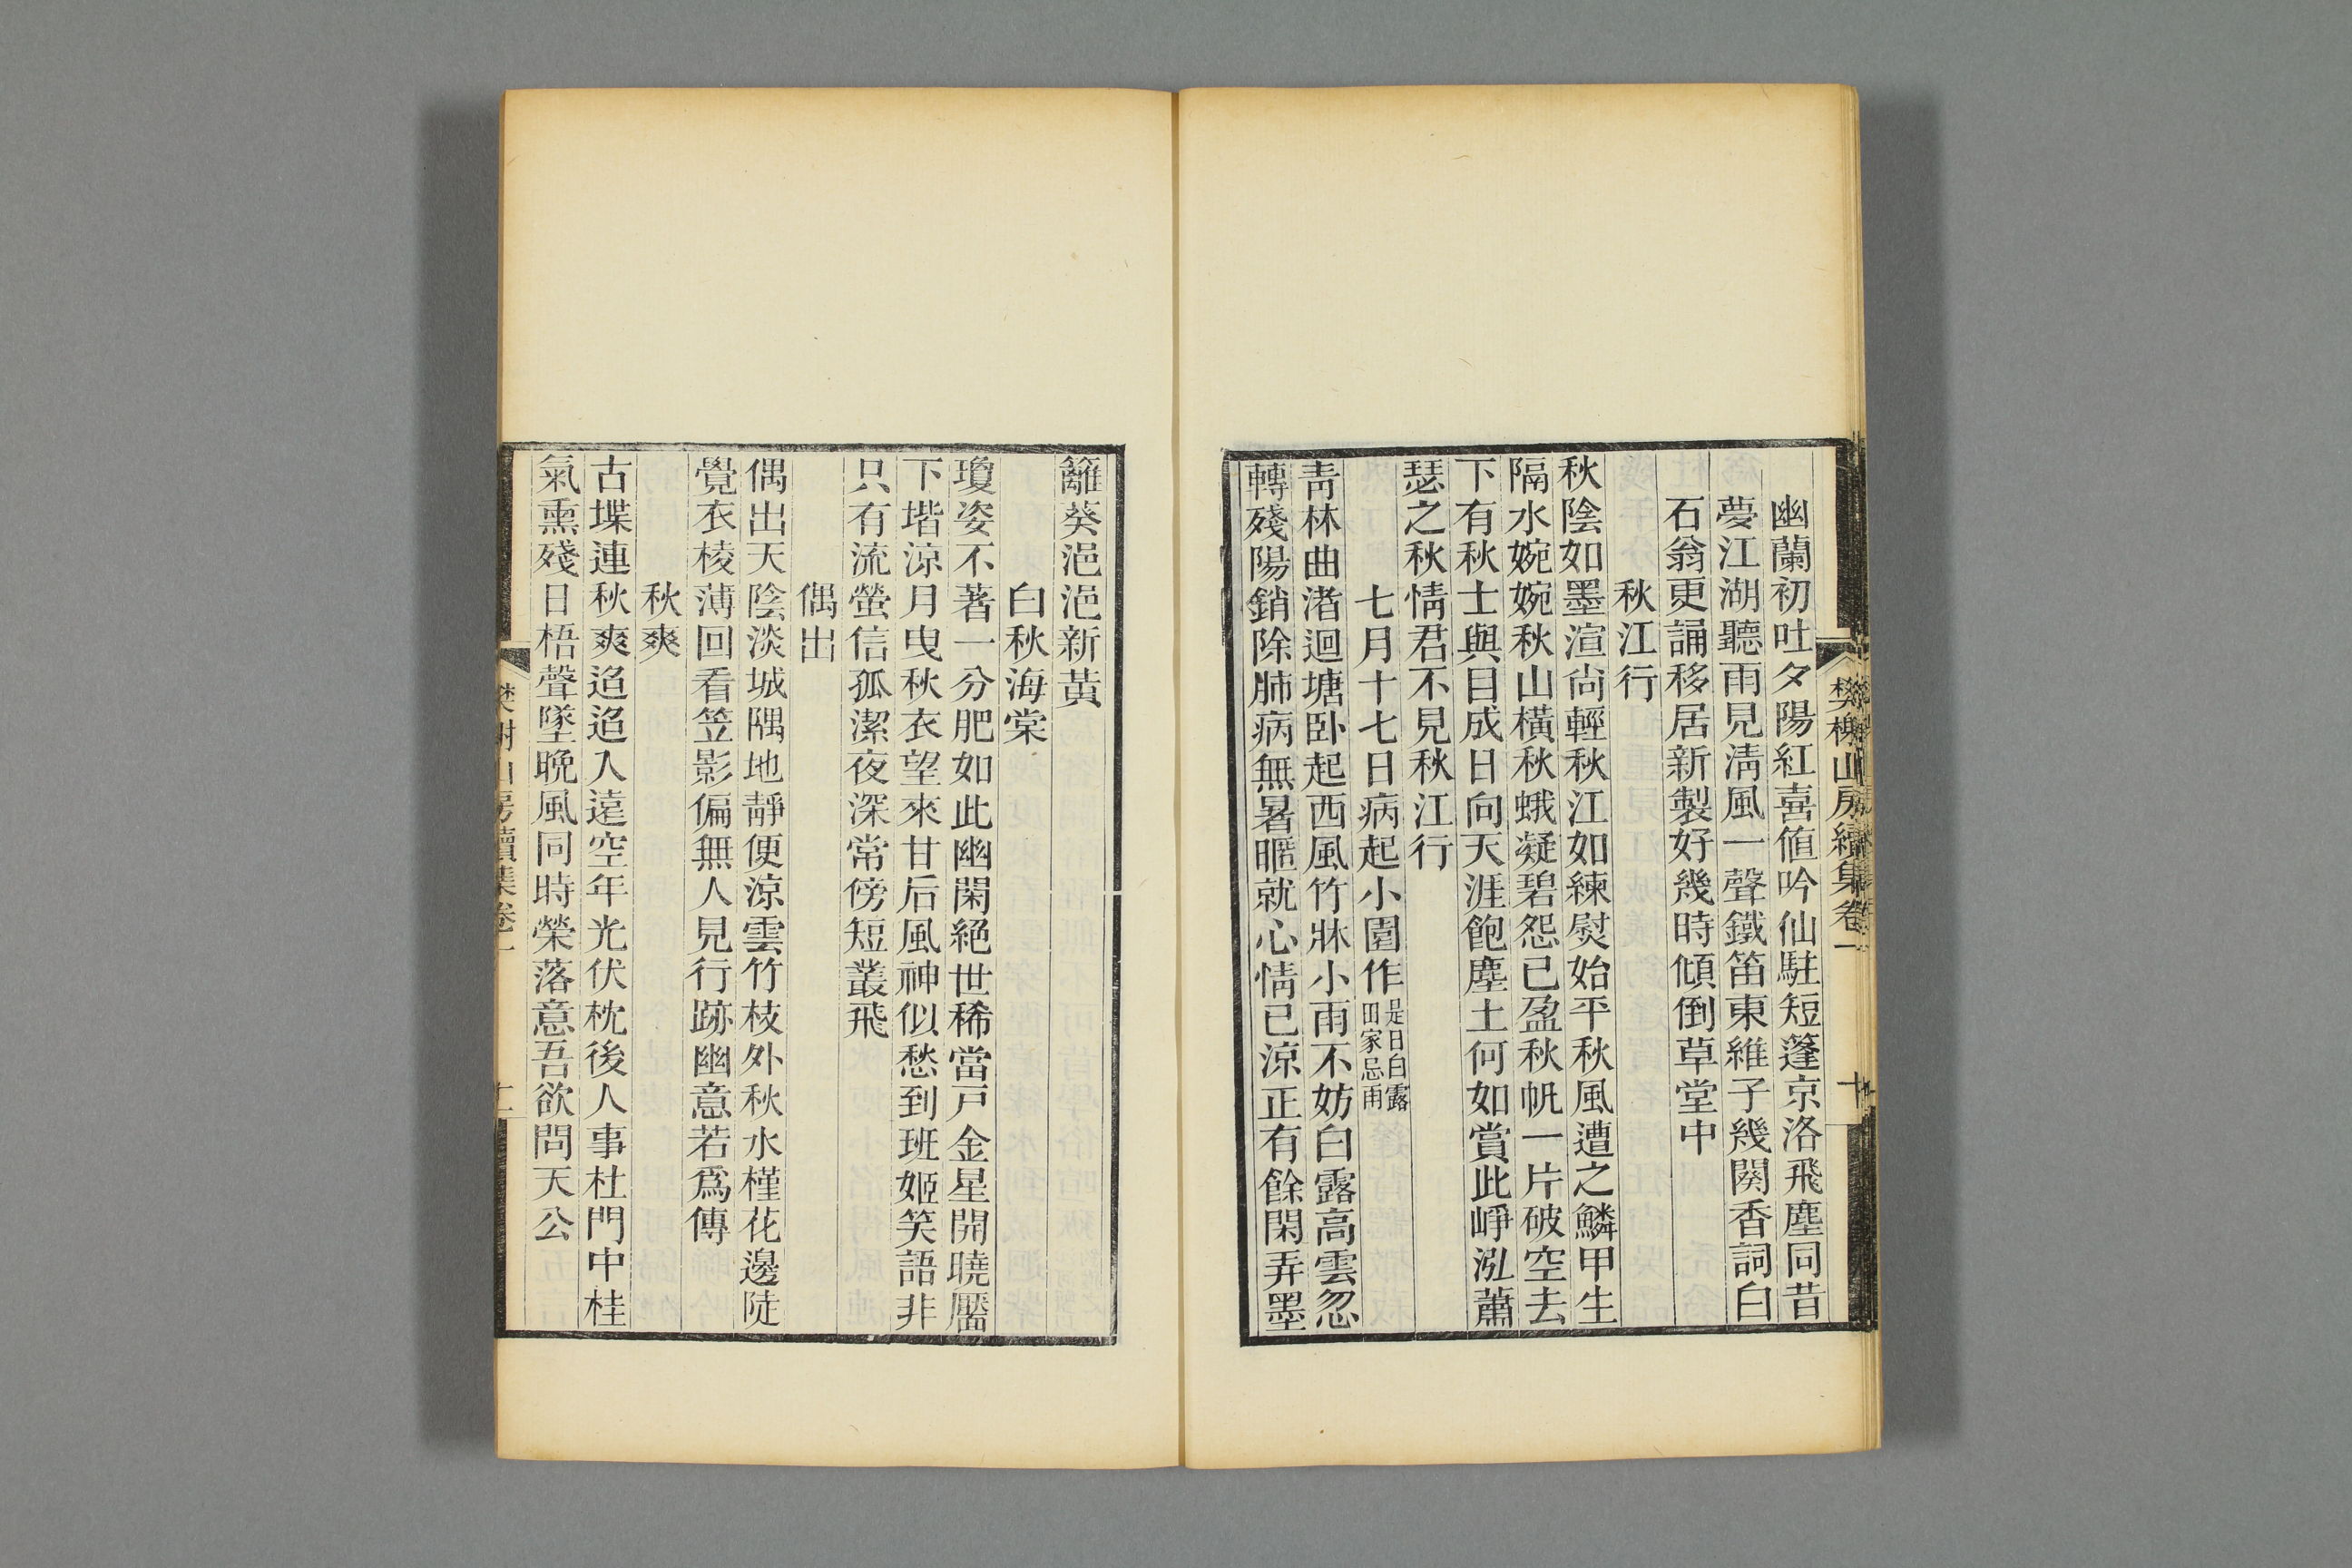 樊榭山房續集卷一
十
幽蘭初吐夕陽紅喜値吟仙駐短篷京洛飛塵同昔
夢江湖聽雨見淸風一聲鐵笛東維子幾闋香詞白
石翁更誦移居新製好幾時傾倒草堂中
秋江行
秋陰如墨渲尙輕秋江如練熨始平秋風遭之鱗甲生
隔水婉婉秋山橫秋蛾凝碧怨已盈秋帆一片破空去
下有秋士與目成日向天涯飽塵土何如賞此崢泓蕭
瑟之秋情君不見秋江行
七月十七日病起小園作是日白露
田家忌雨
靑林曲渚迴塘卧起西風竹牀小雨不妨白露高雲忽
轉殘陽銷除肺病無暑暱就心情已涼正有餘閑弄墨
籬葵浥浥新黃
白秋海棠
瓊姿不著一分肥如此幽閑絕世稀當戸金星開曉靨
下堦涼月曳秋衣望來甘后風神似愁到班姬笑語非
只有流螢信孤潔夜深常傍短叢飛
偶出
偶出天陰淡城隅地靜便涼雲竹枝外秋水槿花邊陡
覺衣棱薄回看笠影偏無人見行跡幽意若爲傳
秋爽
古堞連秋爽迢迢入遠空年光伏枕後人事杜門中桂
氣熏殘日梧聲墜晚風同時榮落意吾欲問天公
樊榭山房續集卷一
十一